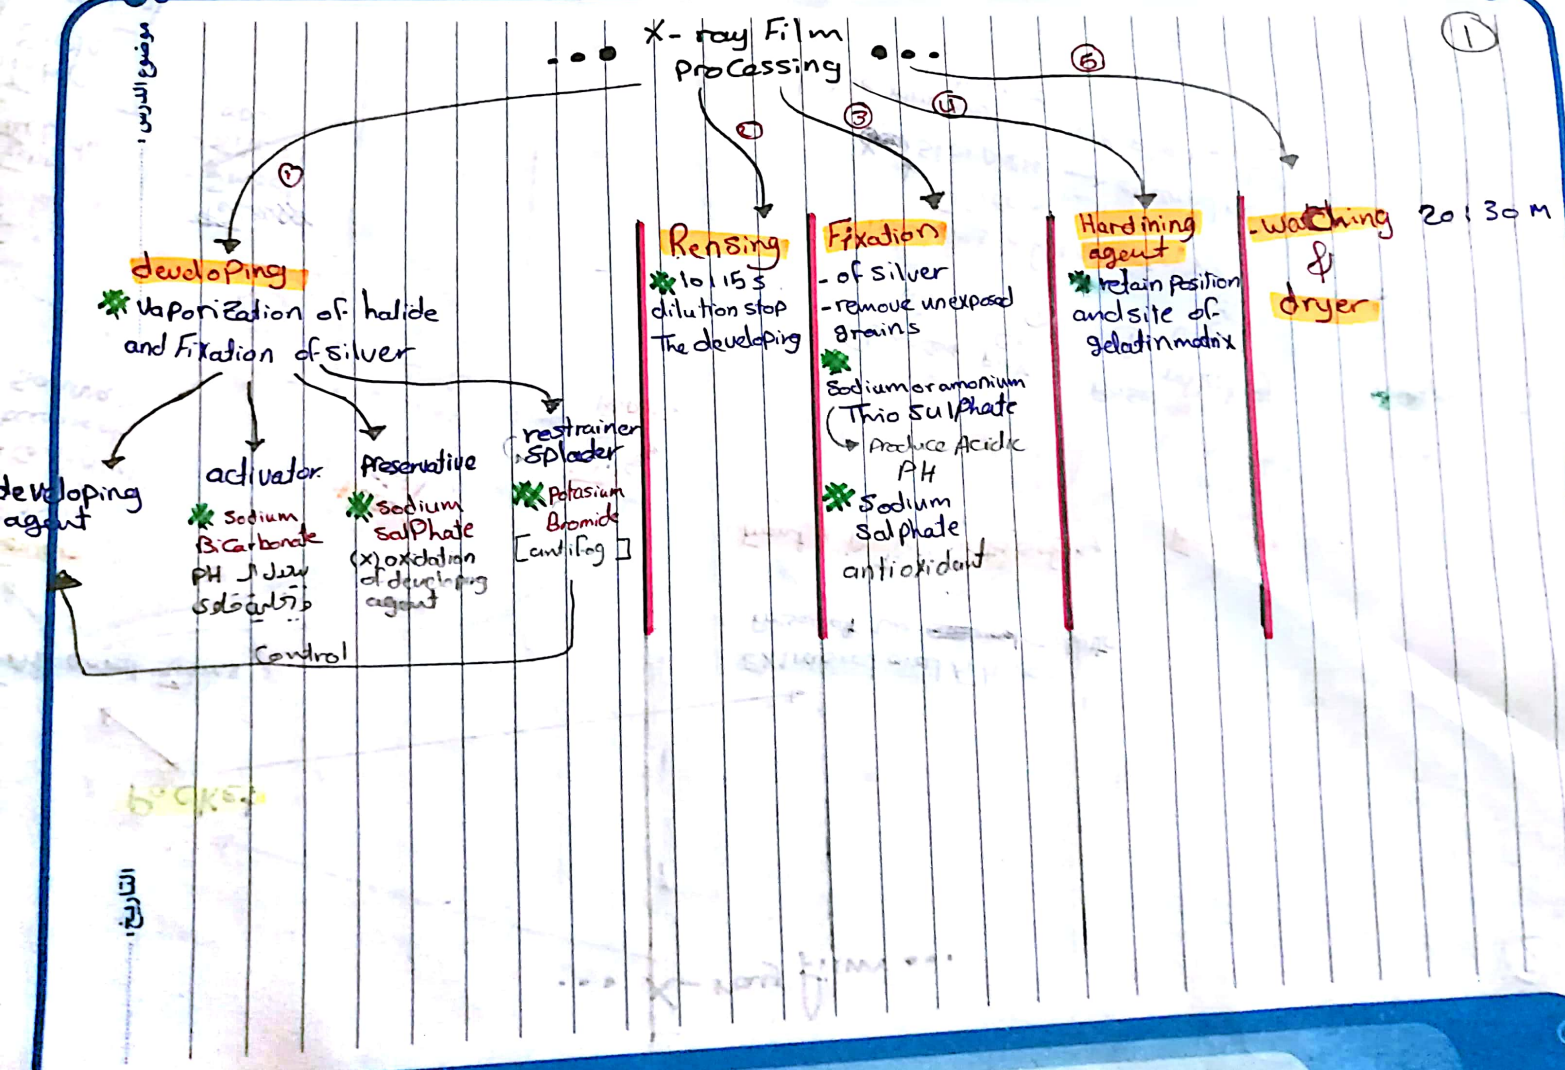 موضوع الدرس:
1
X-ray Film
processing
1
2
3
4
5
developing
vaporization of halide
and Fixation of silver
developing
agent
activator
Sodium
BiCarbonate
يعدل ال PH
Preservative
Sodium
salPhate
(x) oxidation
of developing
agent
restrainer
splader
Potasium
Bromide
[antifog]
Control
Rensing
10 : 15 s
dilution stop
The developing
Fixation
- of silver
- remove unexposed
grains
Sodium or amonium
Thio Sulphate
Produce Acidic
PH
Sodium
Salphate
antioxidant
Hardining
agent
retain Position
and site of
gelatin matrix
- watching
&
dryer
20 : 30 M
Packet
التاريخ:
X-ray film